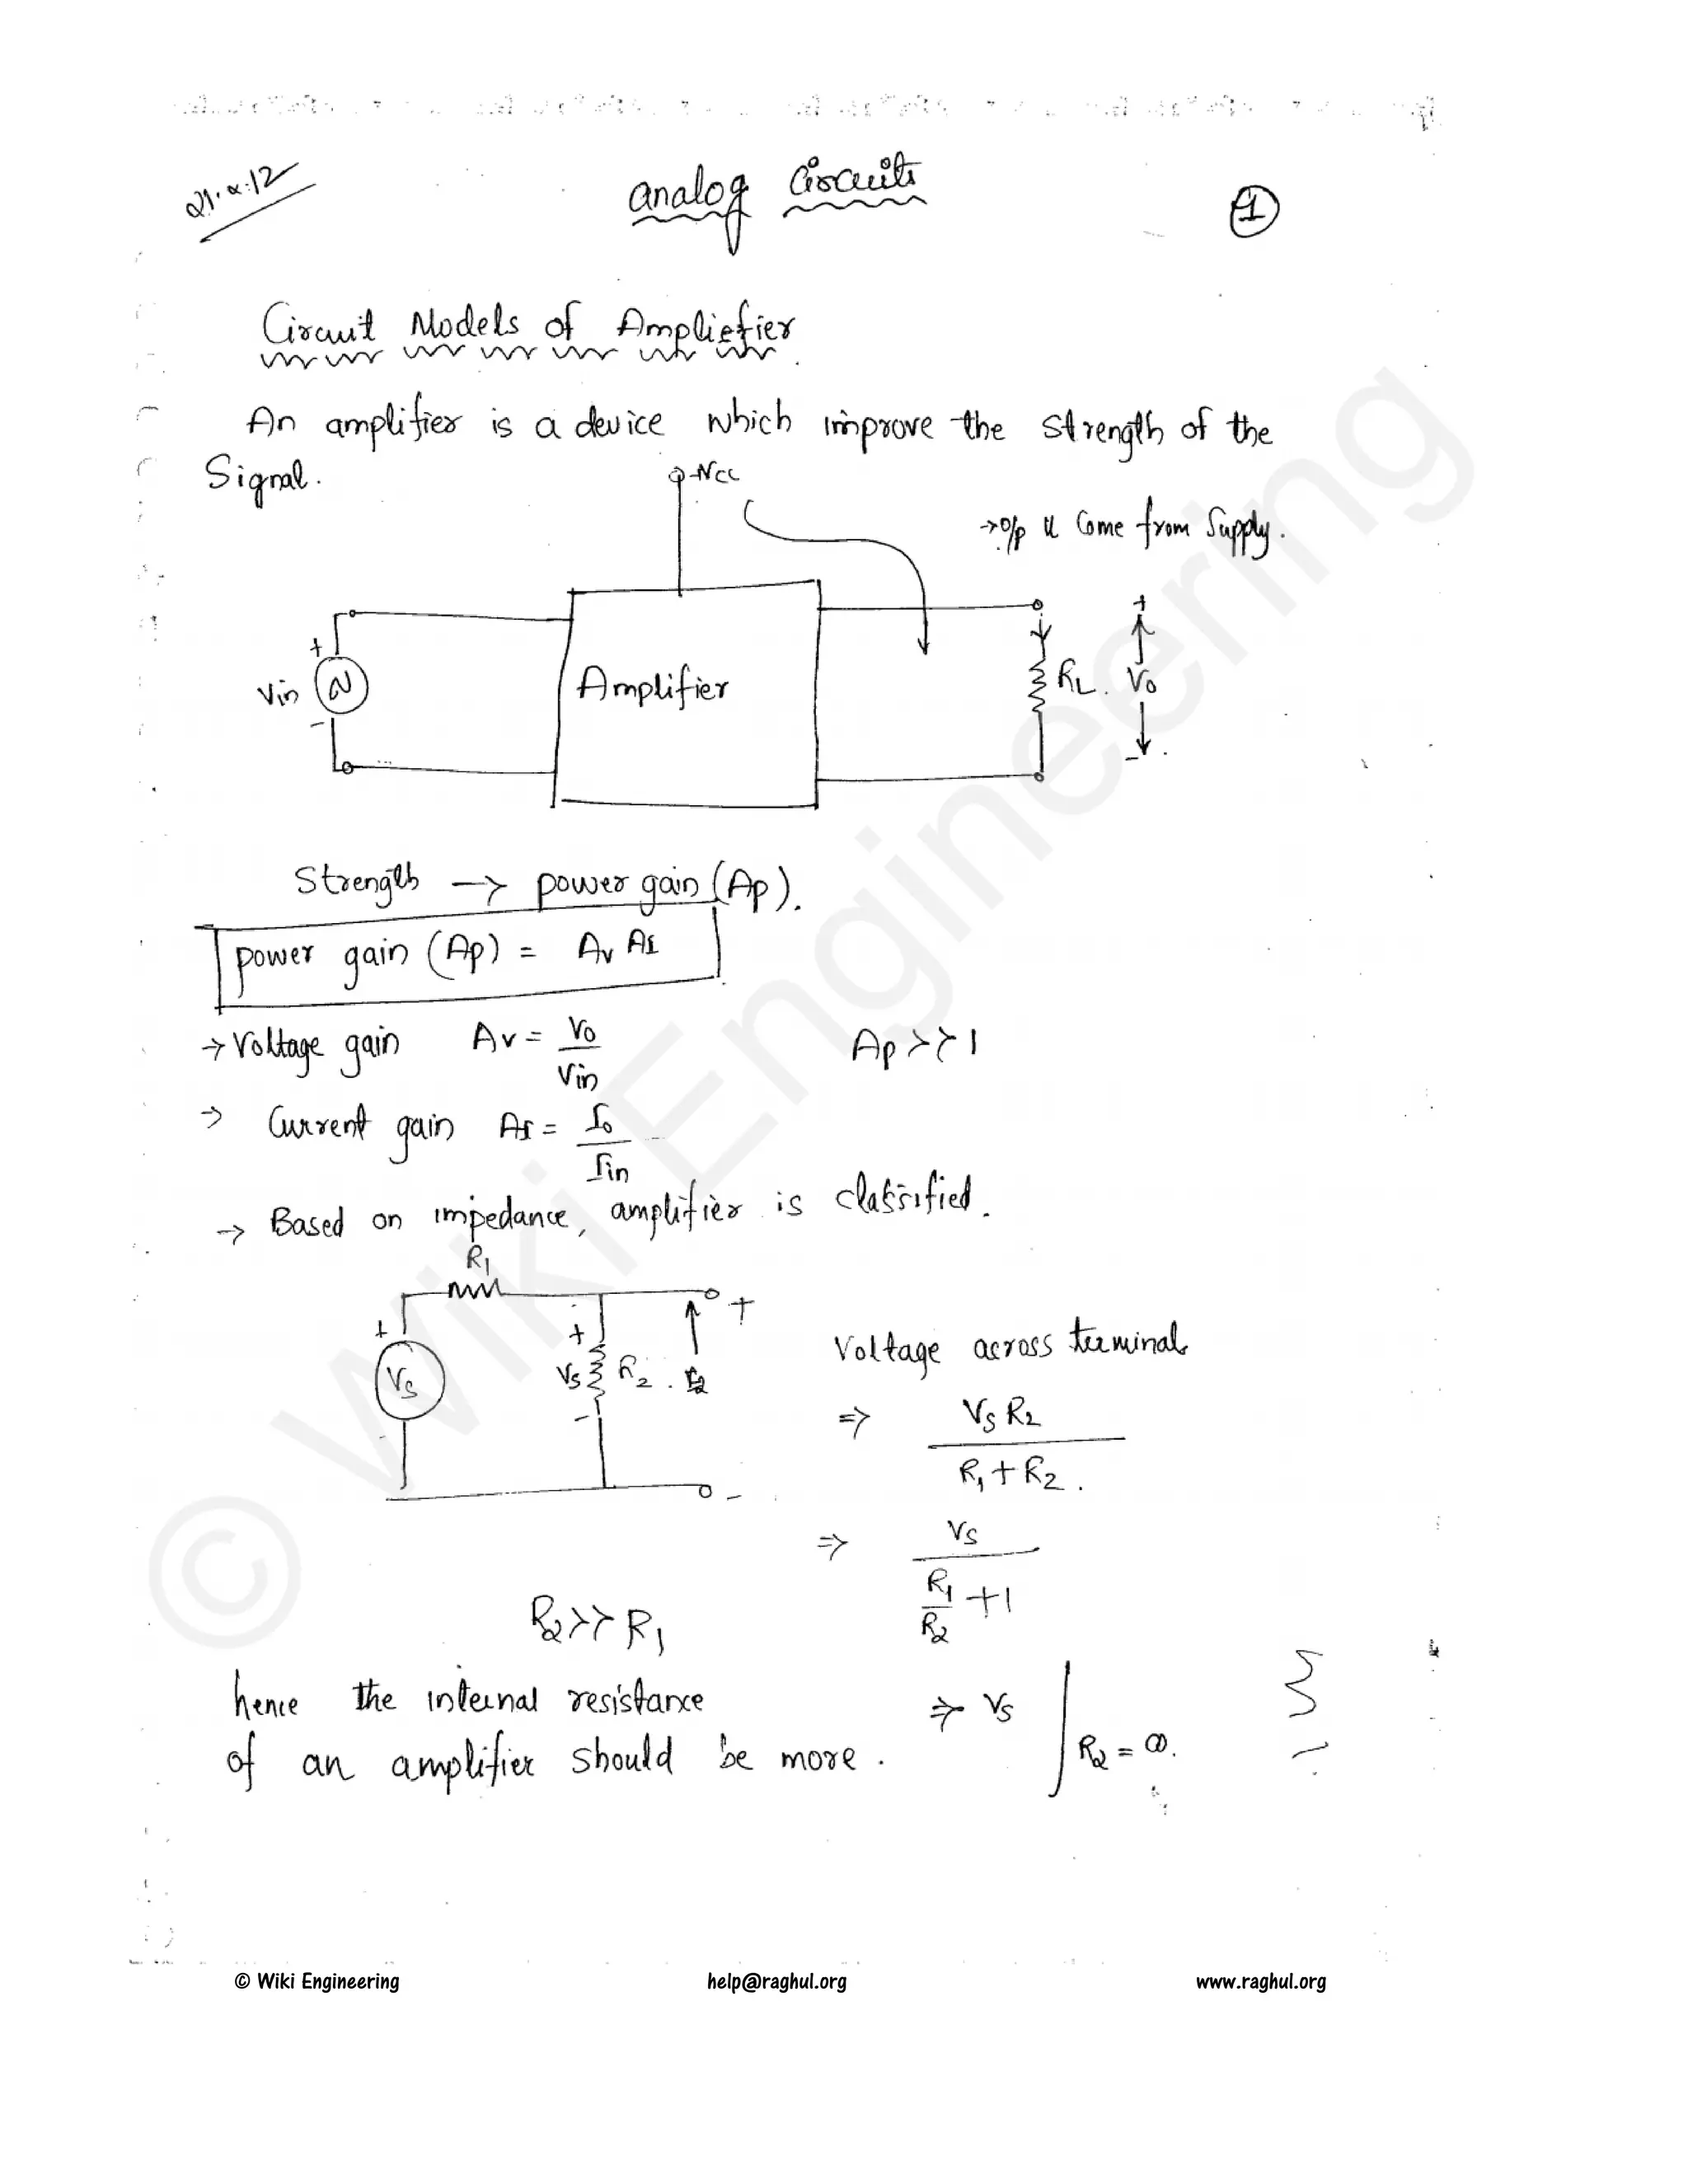 21.2.12
analog Circuits
1
Circuit Models of Ampliefier
An amplifier is a device which improve the strength of the
Signal.
+Vcc
→ O/p
Come from Supply.
+
+
Vin
Amplifier
RL.
Vo
-
-
Strength → power gain (Ap).
power gain (Ap) = Av AI
→ Voltage gain Av = Vo / Vin
Ap >> 1
→ Current gain AI = Io / Iin
→ Based on impedance, amplifier is classified.
R1
+
+
+
Vs
Vs
R2
-
-
Voltage across terminals
⇒ Vs R2 / R1 + R2.
⇒ Vs / R1/R2 + 1
R2 >> R1
hence the internal resistance
of an amplifier should be more.
⇒ Vs | R2 = ∞.
© Wiki Engineering
© Wiki Engineering
help@raghul.org
www.raghul.org